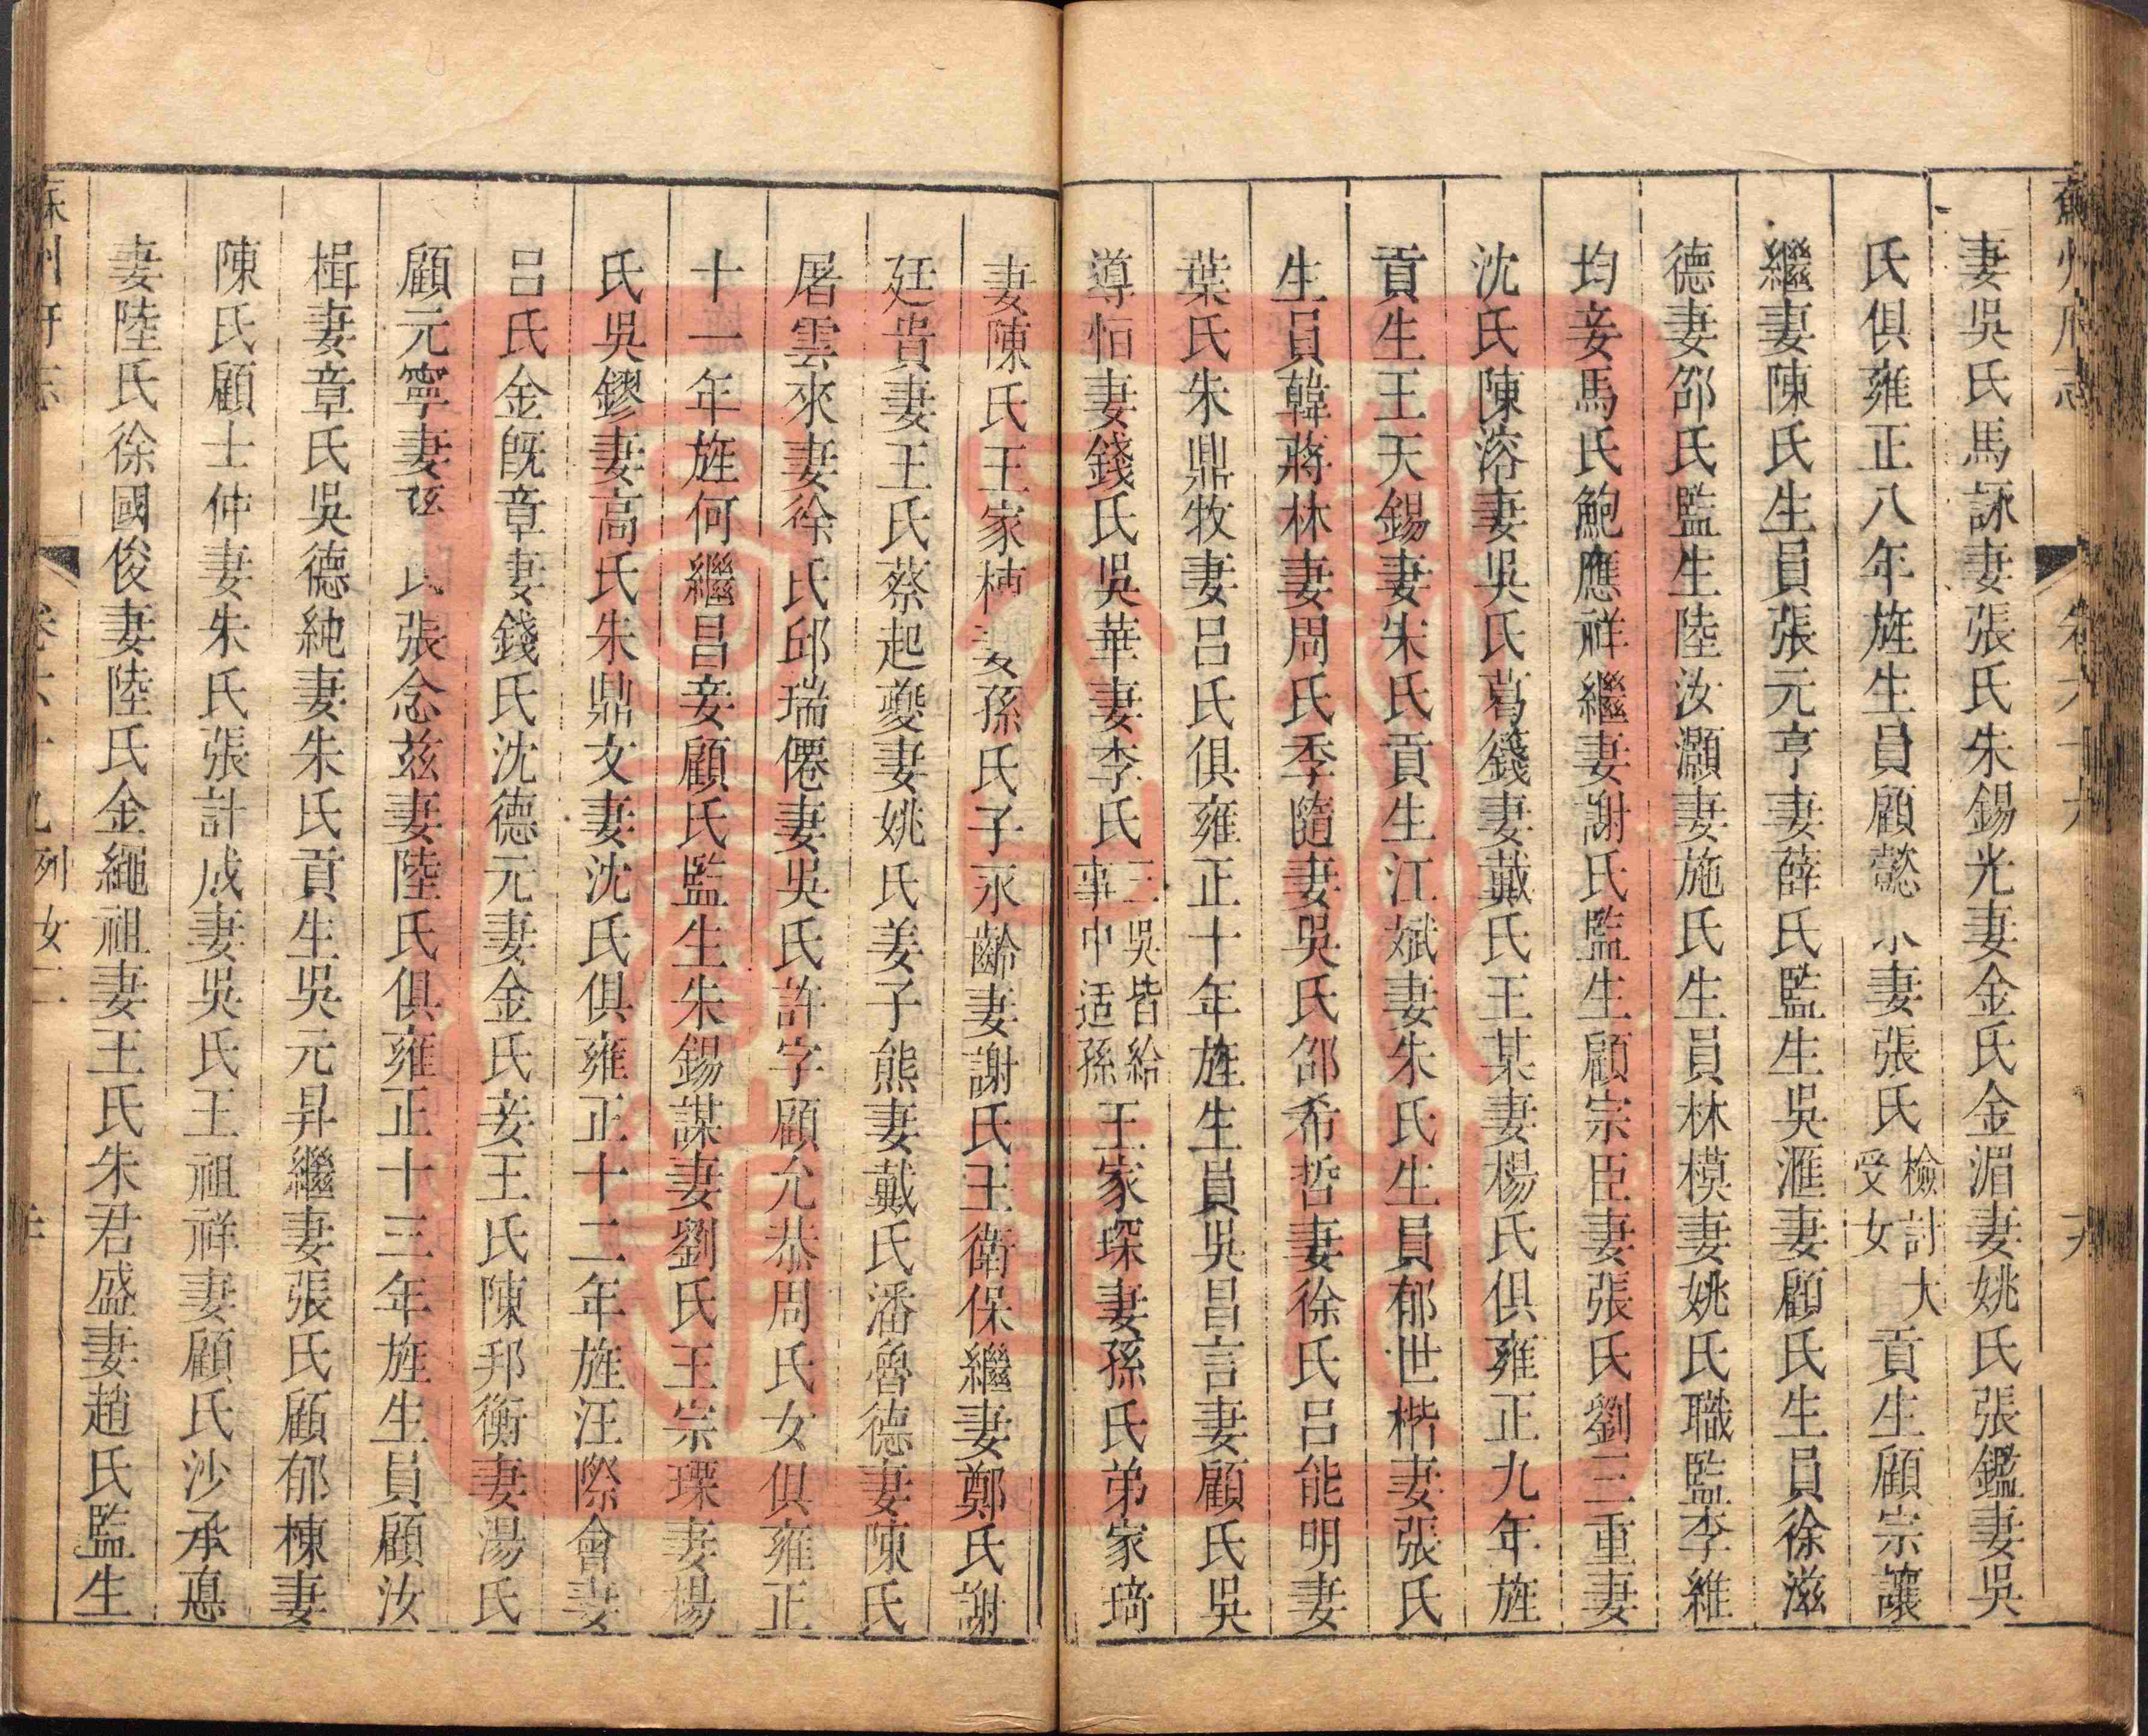 妻吳氏馬詠妻張氏朱錫光妻金氏金湄妻姚氏張鑑妻吳
氏俱雍正八年旌生員顧懿妻張氏檢討大受女貢生顧宗讓
繼妻陳氏生員張元亨妻薛氏監生吳滙妻顧氏生員徐滋
德妻邵氏監生陸汝灝妻施氏生員林模妻姚氏職監李維
均妾馬氏鮑應祥繼妻謝氏監生顧宗臣妻張氏劉三重妻
沈氏陳溶妻吳氏葛籛妻戴氏王某妻楊氏俱雍正九年旌
貢生王天錫妻朱氏貢生江斌妻朱氏生員郁世楷妻張氏
生員韓蔣林妻周氏季隨妻吳氏邵希哲妻徐氏呂能明妻
葉氏朱鼎牧妻呂氏俱雍正十年旌生員吳昌言妻顧氏吳
導恒妻錢氏吳華妻李氏三吳皆給事中适孫王家琛妻孫氏弟家琦
妻陳氏王家妻孫氏子永齡妻謝氏王衛保繼妻鄭氏謝
廷貴妻王氏蔡起夔妻姚氏姜子熊妻戴氏潘魯德妻陳氏
屠雲來妻徐氏邱瑞僊妻吳氏許字顧允恭周氏女俱雍正
十一年旌何繼昌妾顧氏監生朱錫謀妻劉氏王宗瑮妻楊
氏吳鏐妻高氏朱鼎文妻沈氏俱雍正十二年旌汪際會妻
呂氏金旣章妻錢氏沈德元妻金氏妾王氏陳邦衡妻湯氏
顧元寧妻氏張念茲妻陸氏俱雍正十三年旌生員顧汝
楫妻章氏吳德純妻朱氏貢生吳元昇繼妻張氏顧郁棟妻
陳氏顧士仲妻朱氏張計成妻吳氏王祖祥妻顧氏沙承惪
妻陸氏徐國俊妻陸氏金繩祖妻王氏朱君盛妻趙氏監生
列女二